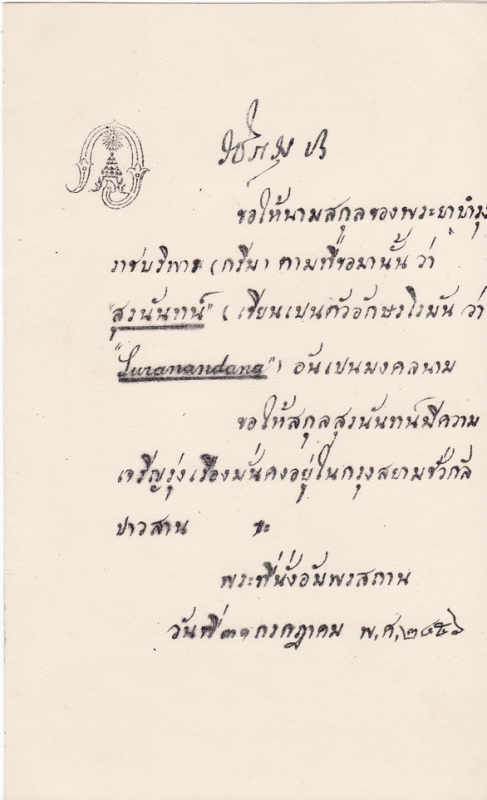 ขอให้นามสกุลของพระยาบำรุง
ราชบริพาร (กรีนา ตามที่ขอมานั้น ว่า
"สุรนันทน์" (เขียนเปนตัวอักษรโรมัน ว่า
"Suranandana") อันเปนมงคลนาม
ขอให้สกุลสุรนันทน์มีความ
เจริญรุ่งเรืองมั่นคงอยู่ในกรุงสยามชั่วกัล
ปาวสาน ๚ะ
พระที่นั่งอัมพรสถาน
วันที่ ๓๑ กรกฎาคม พ.ศ. ๒๔๕๖